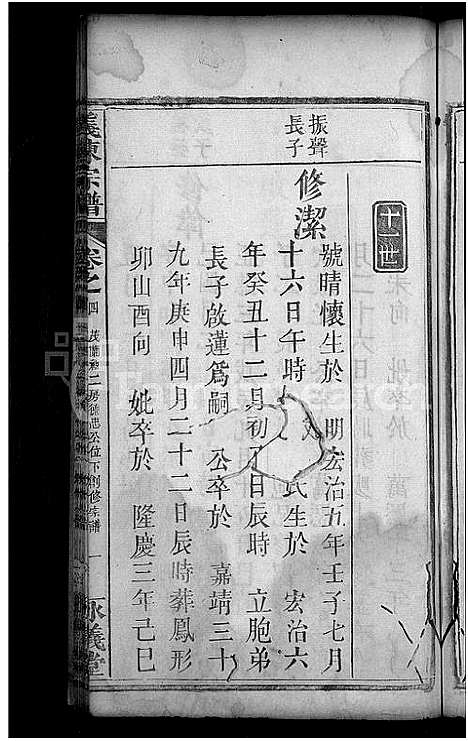 十一世
振聲
長子
修潔
號晴懷生於 明宏治五年壬子七月
十六日午時 氏生於 宏治六
年癸丑十二月初 日辰時 立胞弟
長子啟蓮爲嗣 公卒於 嘉靖三十
九年庚申四月二十二日辰時葬鳳形
卯山酉向 妣卒於 隆慶三年己巳
義陳宗譜 卷之四 二房 公位下創修宗譜 一 永義堂